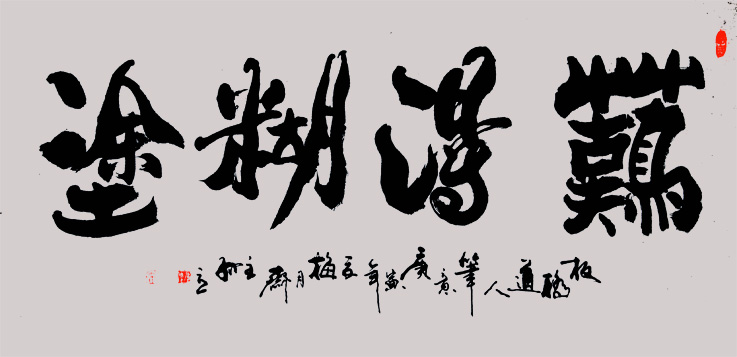 難得糊塗
板橋道人筆意庚寅年夏梅月齋主